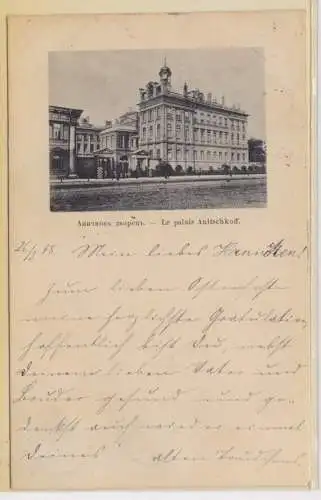 Аничковъ дворецъ. — Le palais Anitschkoff.
Mein liebes Hannchen!
Zum lieben Osterfest
meine herzlichste Gratulation
hoffentlich bist Du, nebst
Deinem lieben Vater und
Bruder gesund und ge-
denkst auch wieder einmal
Deines alten